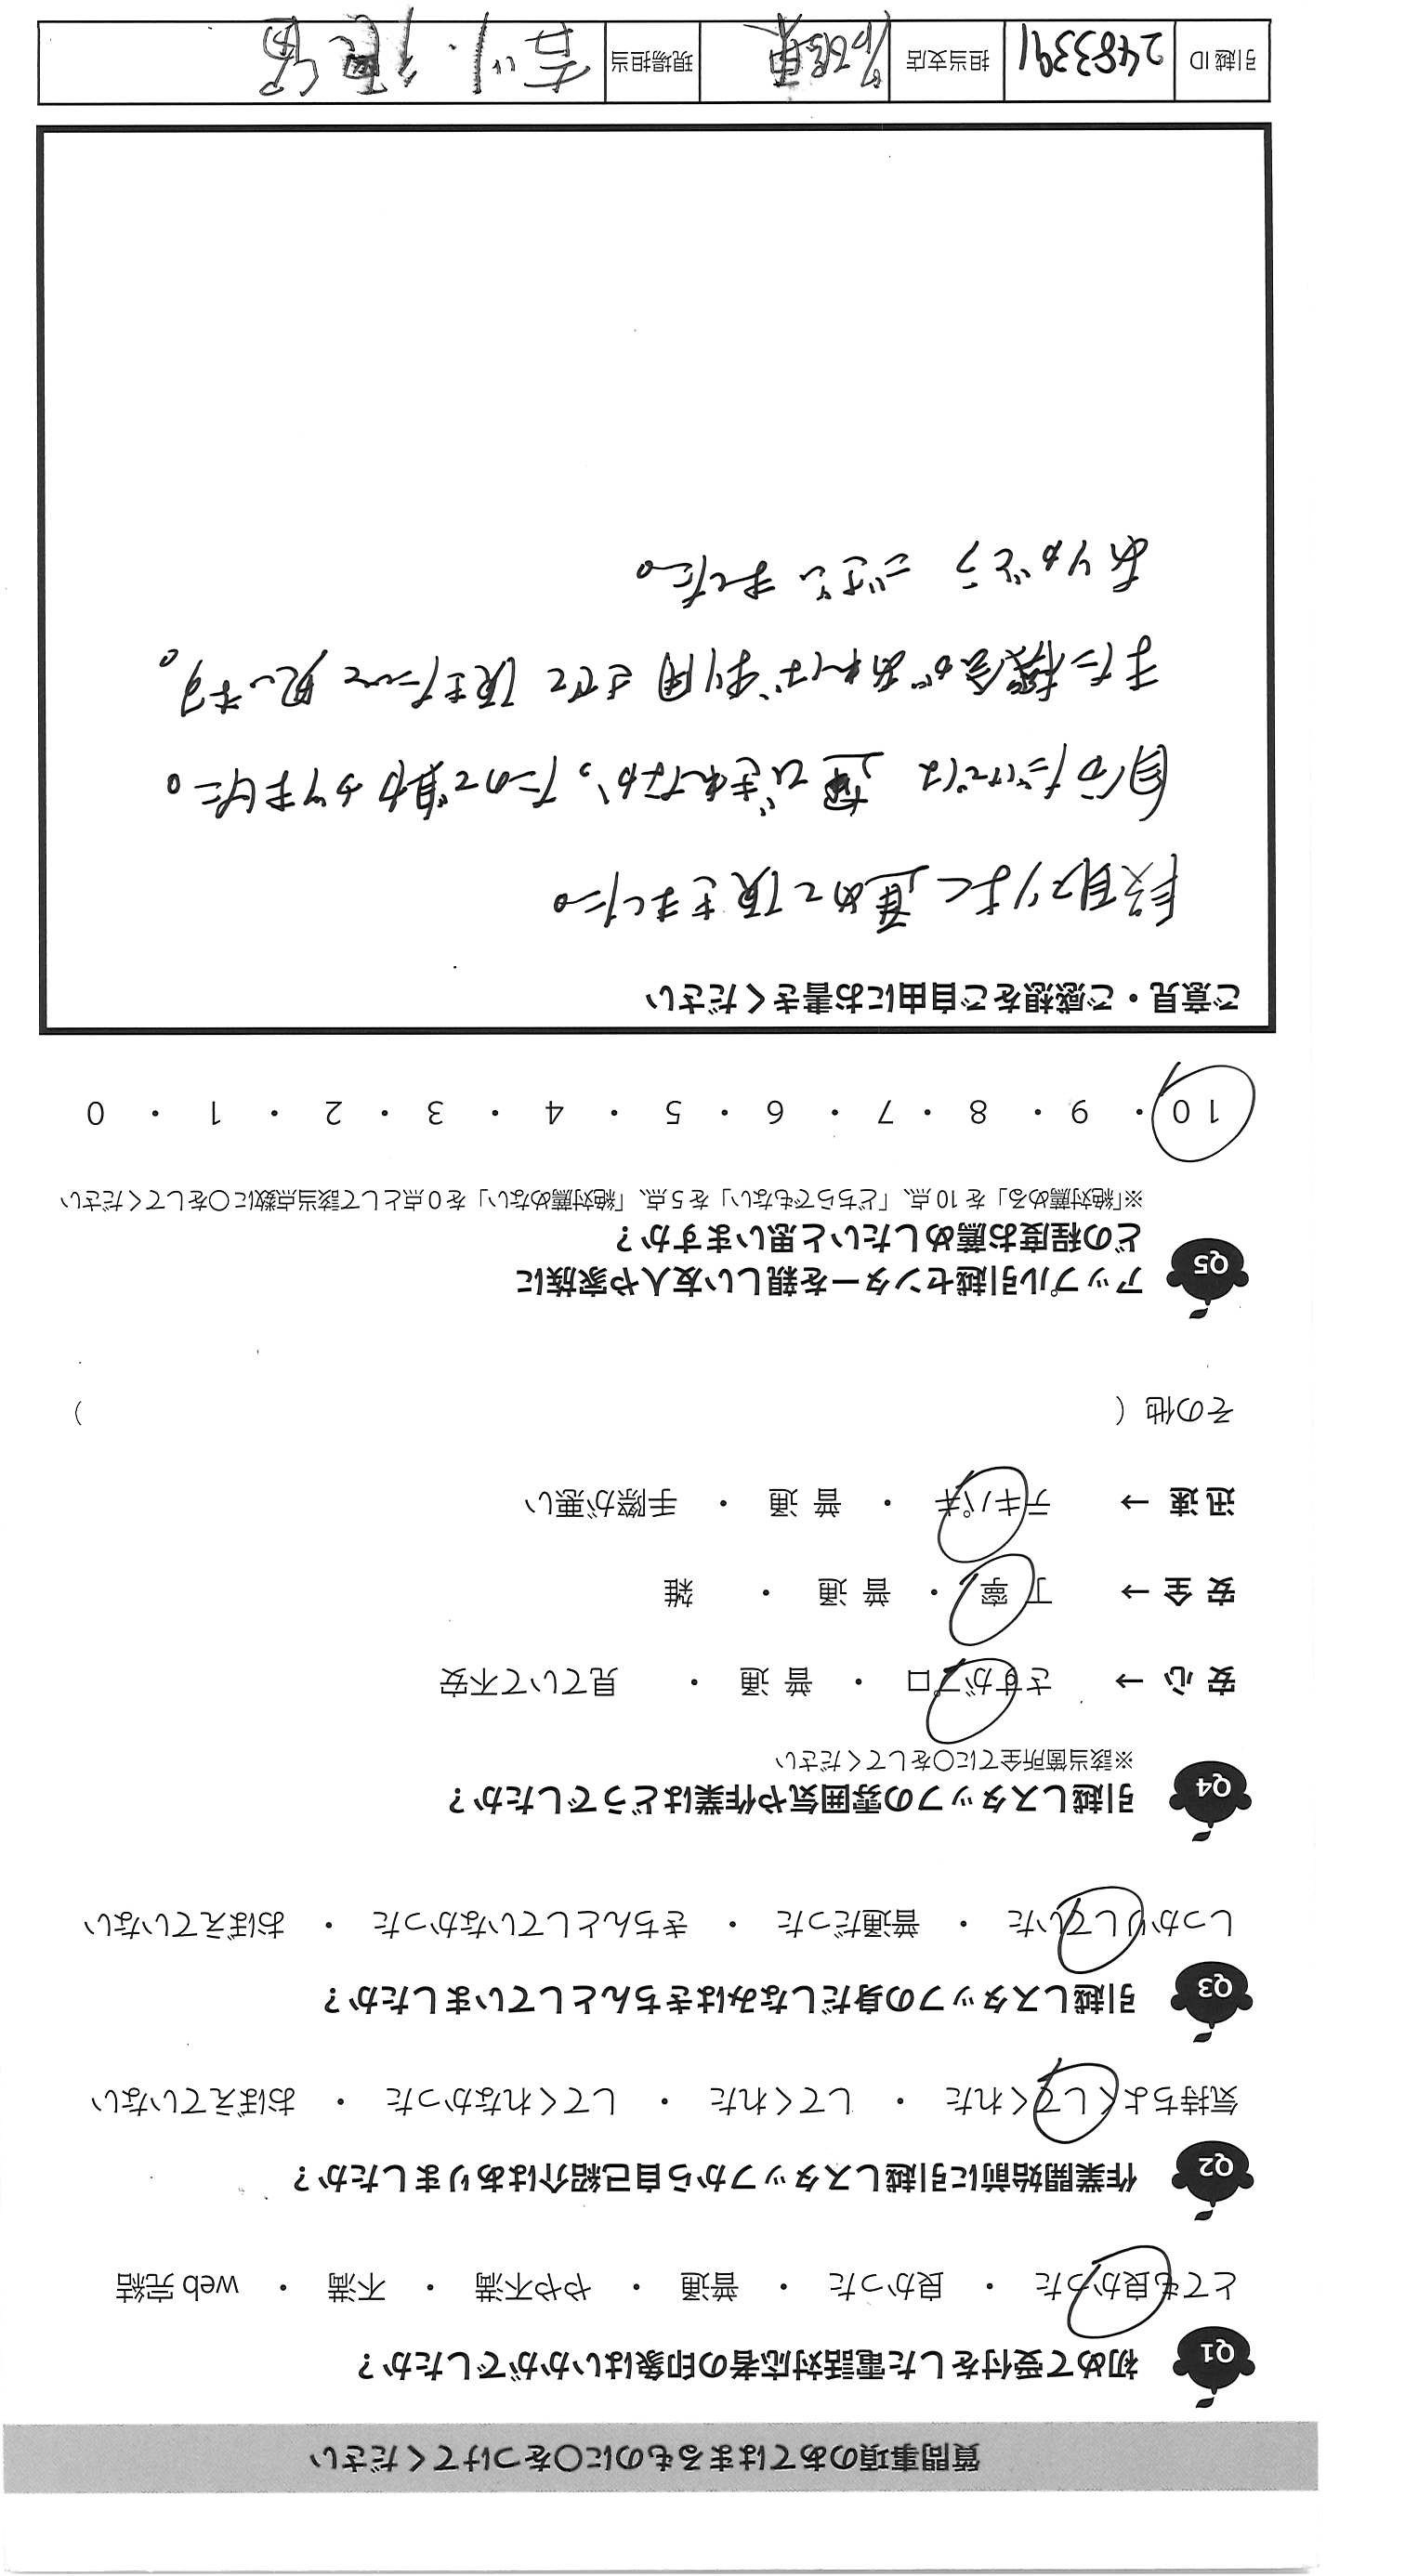 質問事項のあてはまるものに○をつけてください
Q1 初めて受付をした電話対応者の印象はいかがでしたか？
とても良かった ・ 良かった ・ 普通 ・ やや不満 ・ 不満 ・ web 完結
Q2 作業開始前に引越しスタッフから自己紹介はありましたか？
気持ちよくしてくれた ・ してくれた ・ してくれなかった ・ おぼえていない
Q3 引越しスタッフの身だしなみはきちんとしていましたか？
しっかりしていた ・ 普通だった ・ きちんとしていなかった ・ おぼえていない
Q4 引越しスタッフの雰囲気や作業はどうでしたか？
※該当箇所全てに○をしてください
安心 → さすがプロ ・ 普通 ・ 見ていて不安
安全 → 丁寧 ・ 普通 ・ 雑
迅速 → テキパキ ・ 普通 ・ 手際が悪い
その他（ ）
Q5 アップル引越センターを親しい友人や家族に
どの程度お薦めしたいと思いますか？
※「絶対薦める」を 10 点、「どちらでもない」を 5 点、「絶対薦めない」を 0 点として該当点数に○をしてください
10 ・ 9 ・ 8 ・ 7 ・ 6 ・ 5 ・ 4 ・ 3 ・ 2 ・ 1 ・ 0
ご意見・ご感想をご自由にお書きください
段取りよく進めて頂きました。
自分だけでは運びきれなかったので助かりました。
また機会があれば利用させて頂きたいと思います。
ありがとうございました。
引越 ID 2483391 担当支店 現場担当 吉川・